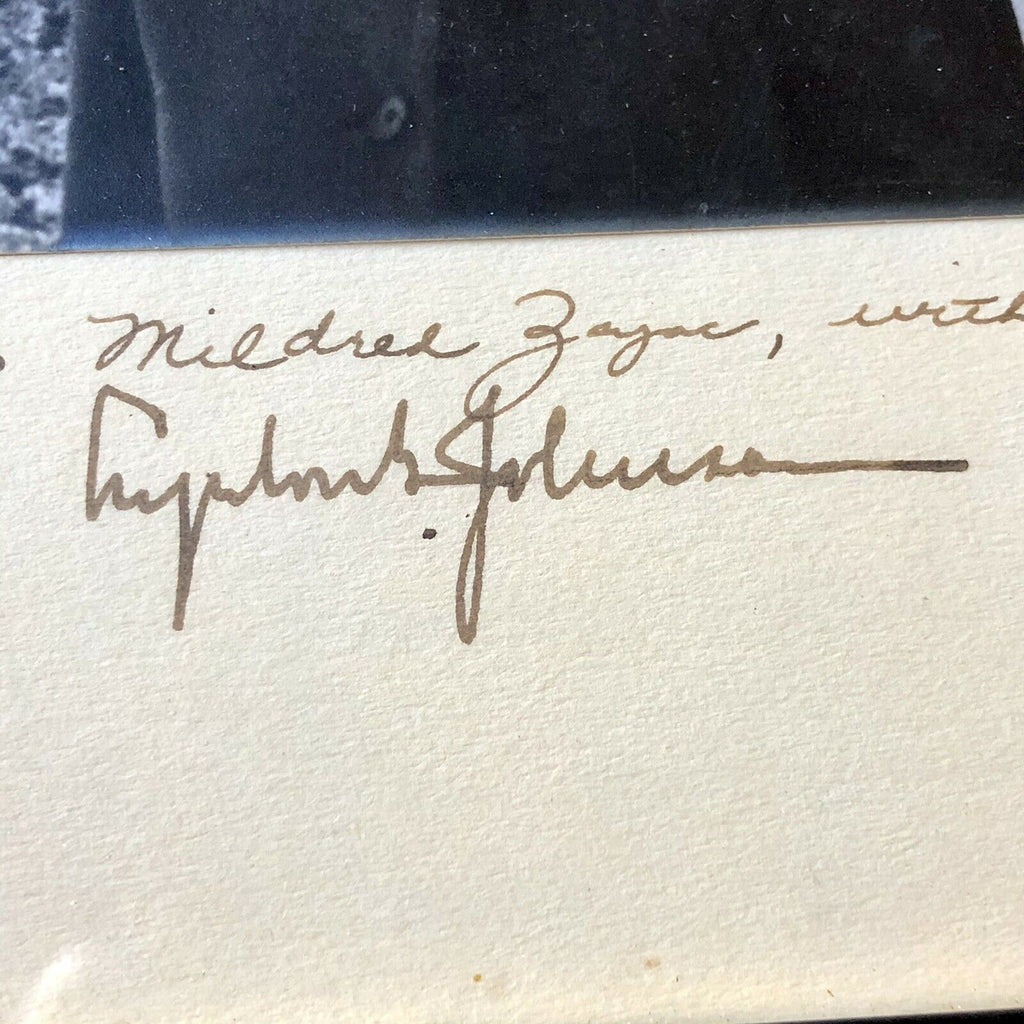 Mildred Zayac, with
Lyndon B. Johnson